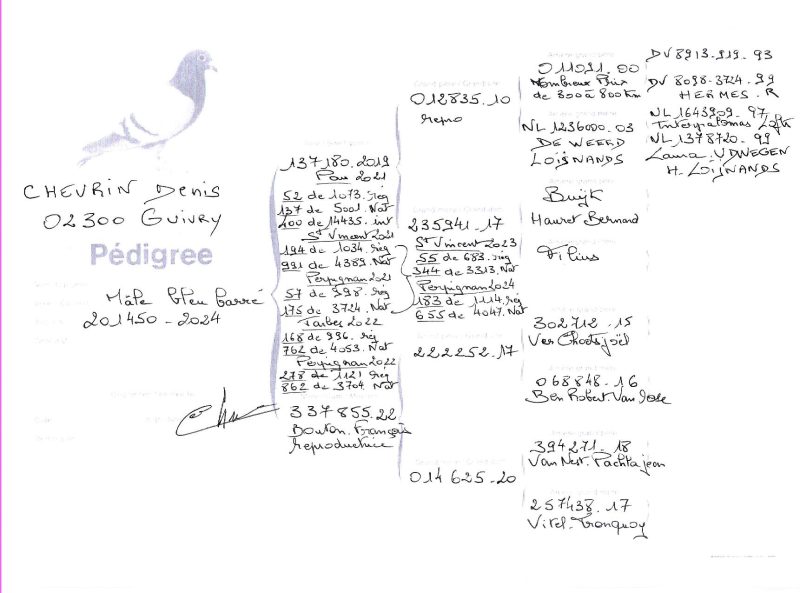 CHEVRIN Denis
02300 GUIVRY
Pédigree
Mâle bleu barré
201450-2024
137180.2019
Pau 2021
52 de 1073. rég
137 de 5001. Nat
400 de 14435. int
St Vincent 2021
194 de 1034. rég
991 de 4389. Nat
Perpignan 2021
57 de 998. rég
175 de 3724. Nat
Tarbes 2022
168 de 996. rég
762 de 4053. Nat
Perpignan 2022
278 de 1121 rég
862 de 3704 Nat
337855.22
Bouton. François
reproductrice
012835.10
repro
235941.17
St Vincent 2023
55 de 683. rég
344 de 3313. Nat
Perpignan 2024
183 de 1114. rég
655 de 4047. Nat
222252.17
014625-20
011091.00
Nombreux Prix
de 300 à 800 km
NL 1236000.03
DE WEERD
LOIJNANDS
Buijk
Hauret Bernard
Filius
302712.15
068848.16
394271.18
257438.17
Vitel-Tronquoy
DV 8913.919.93
DV 8098-3724.99
HERMES.R
NL 1643909.97
NL 1378720.99
H. LOIJNANDS